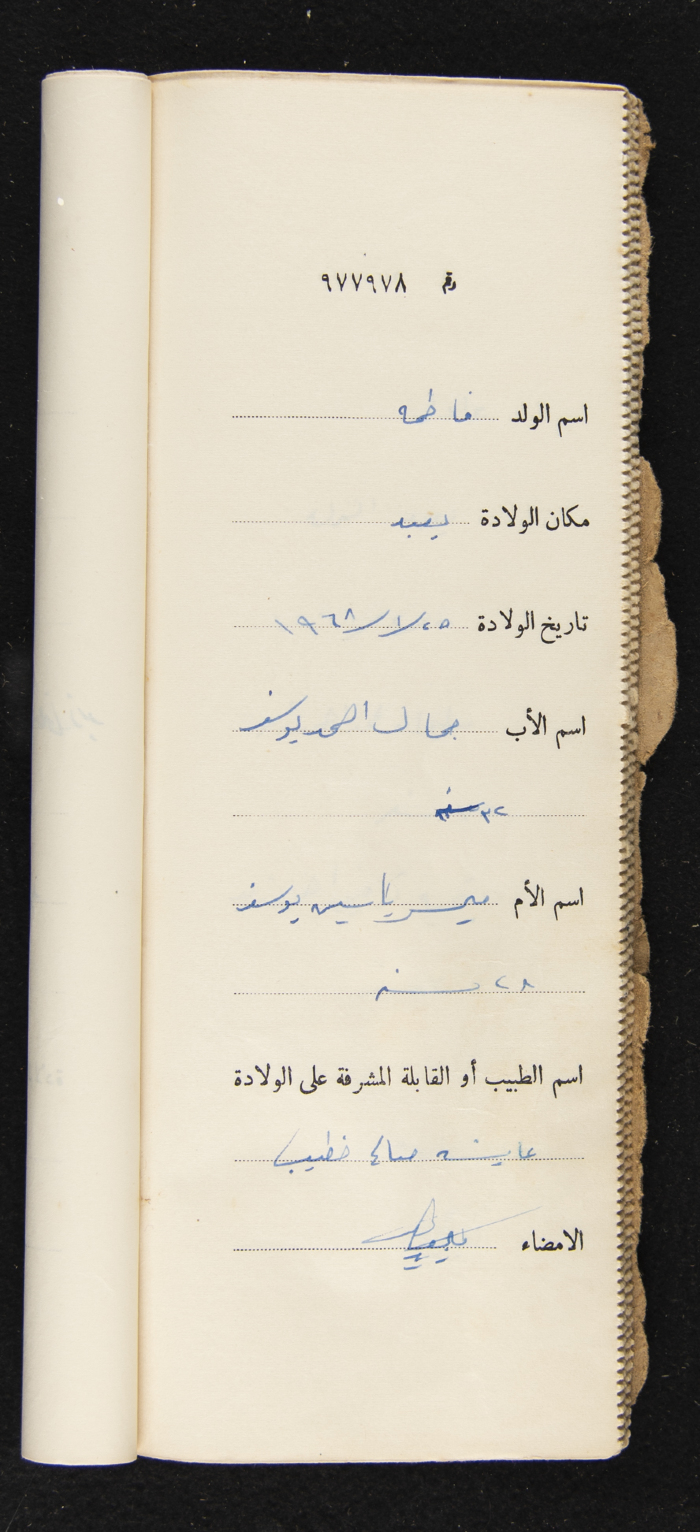 رقم ٩٧٧٩٧٨
اسم الولد فاطمه
مكان الولادة يعبد
تاريخ الولادة ٢٥/١/١٩٦٨
اسم الأب جمال احمد يوسف
٣٢ سنه
اسم الأم ميسر ياسين يوسف
٢٨ سنه
اسم الطبيب أو القابلة المشرفة على الولادة
عايشه صالح خطيب
الامضاء